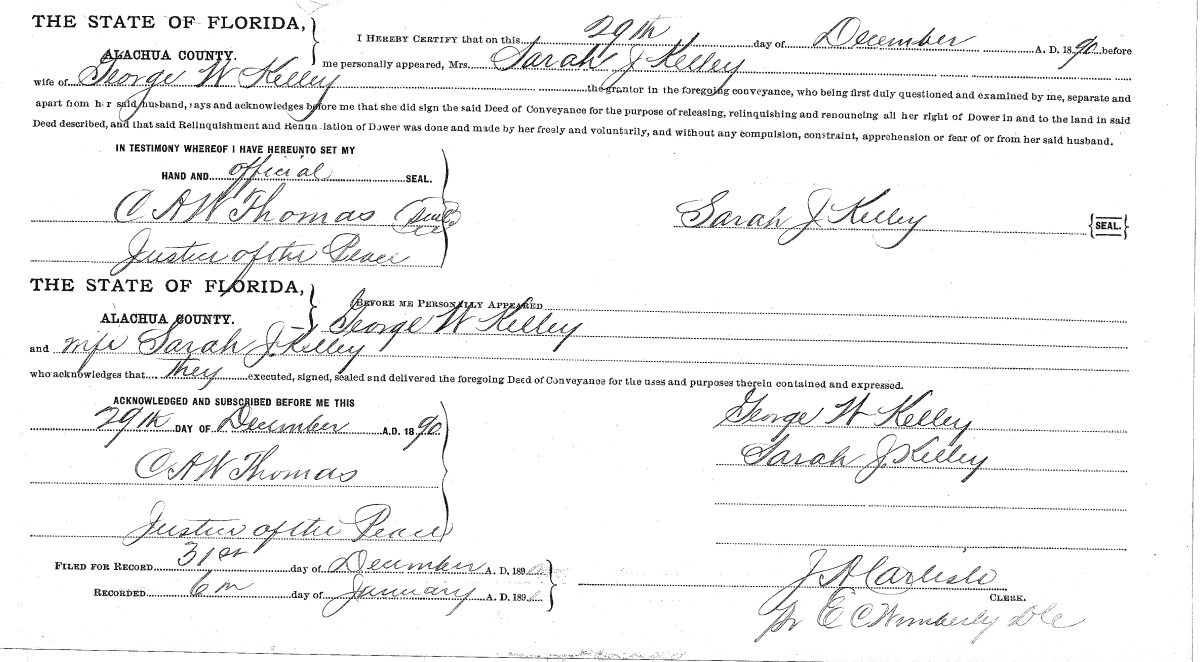 THE STATE OF FLORIDA,
ALACHUA COUNTY.
I HEREBY CERTIFY that on this 29th day of December A. D. 1890 before
me personally appeared, Mrs. Sarah J Kelley
wife of George W Kelley the grantor in the foregoing conveyance, who being first duly questioned and examined by me, separate and
apart from her said husband, says and acknowledges before me that she did sign the said Deed of Conveyance for the purpose of releasing, relinquishing and renouncing all her right of Dower in and to the land in said
Deed described, and that said Relinquishment and Renunciation of Dower was done and made by her freely and voluntarily, and without any compulsion, constraint, apprehension or fear of or from her said husband.
IN TESTIMONY WHEREOF I HAVE HEREUNTO SET MY
HAND AND official SEAL.
C A W Thomas (Seal)
Justice of the Peace
Sarah J Kelley {SEAL.}
THE STATE OF FLORIDA,
ALACHUA COUNTY.
BEFORE ME PERSONALLY APPEARED
George W Kelley
and wife Sarah J. Kelley
who acknowledges that they executed, signed, sealed and delivered the foregoing Deed of Conveyance for the uses and purposes therein contained and expressed.
ACKNOWLEDGED AND SUBSCRIBED BEFORE ME THIS
29th DAY OF December A.D. 1890
C A W Thomas
Justice of the Peace
George W Kelley
Sarah J. Kelley
FILED FOR RECORD 31st day of December A. D. 189
RECORDED 6th day of January A. D. 189
J A Carlisle
CLERK.
Pr E C Wimberly D C